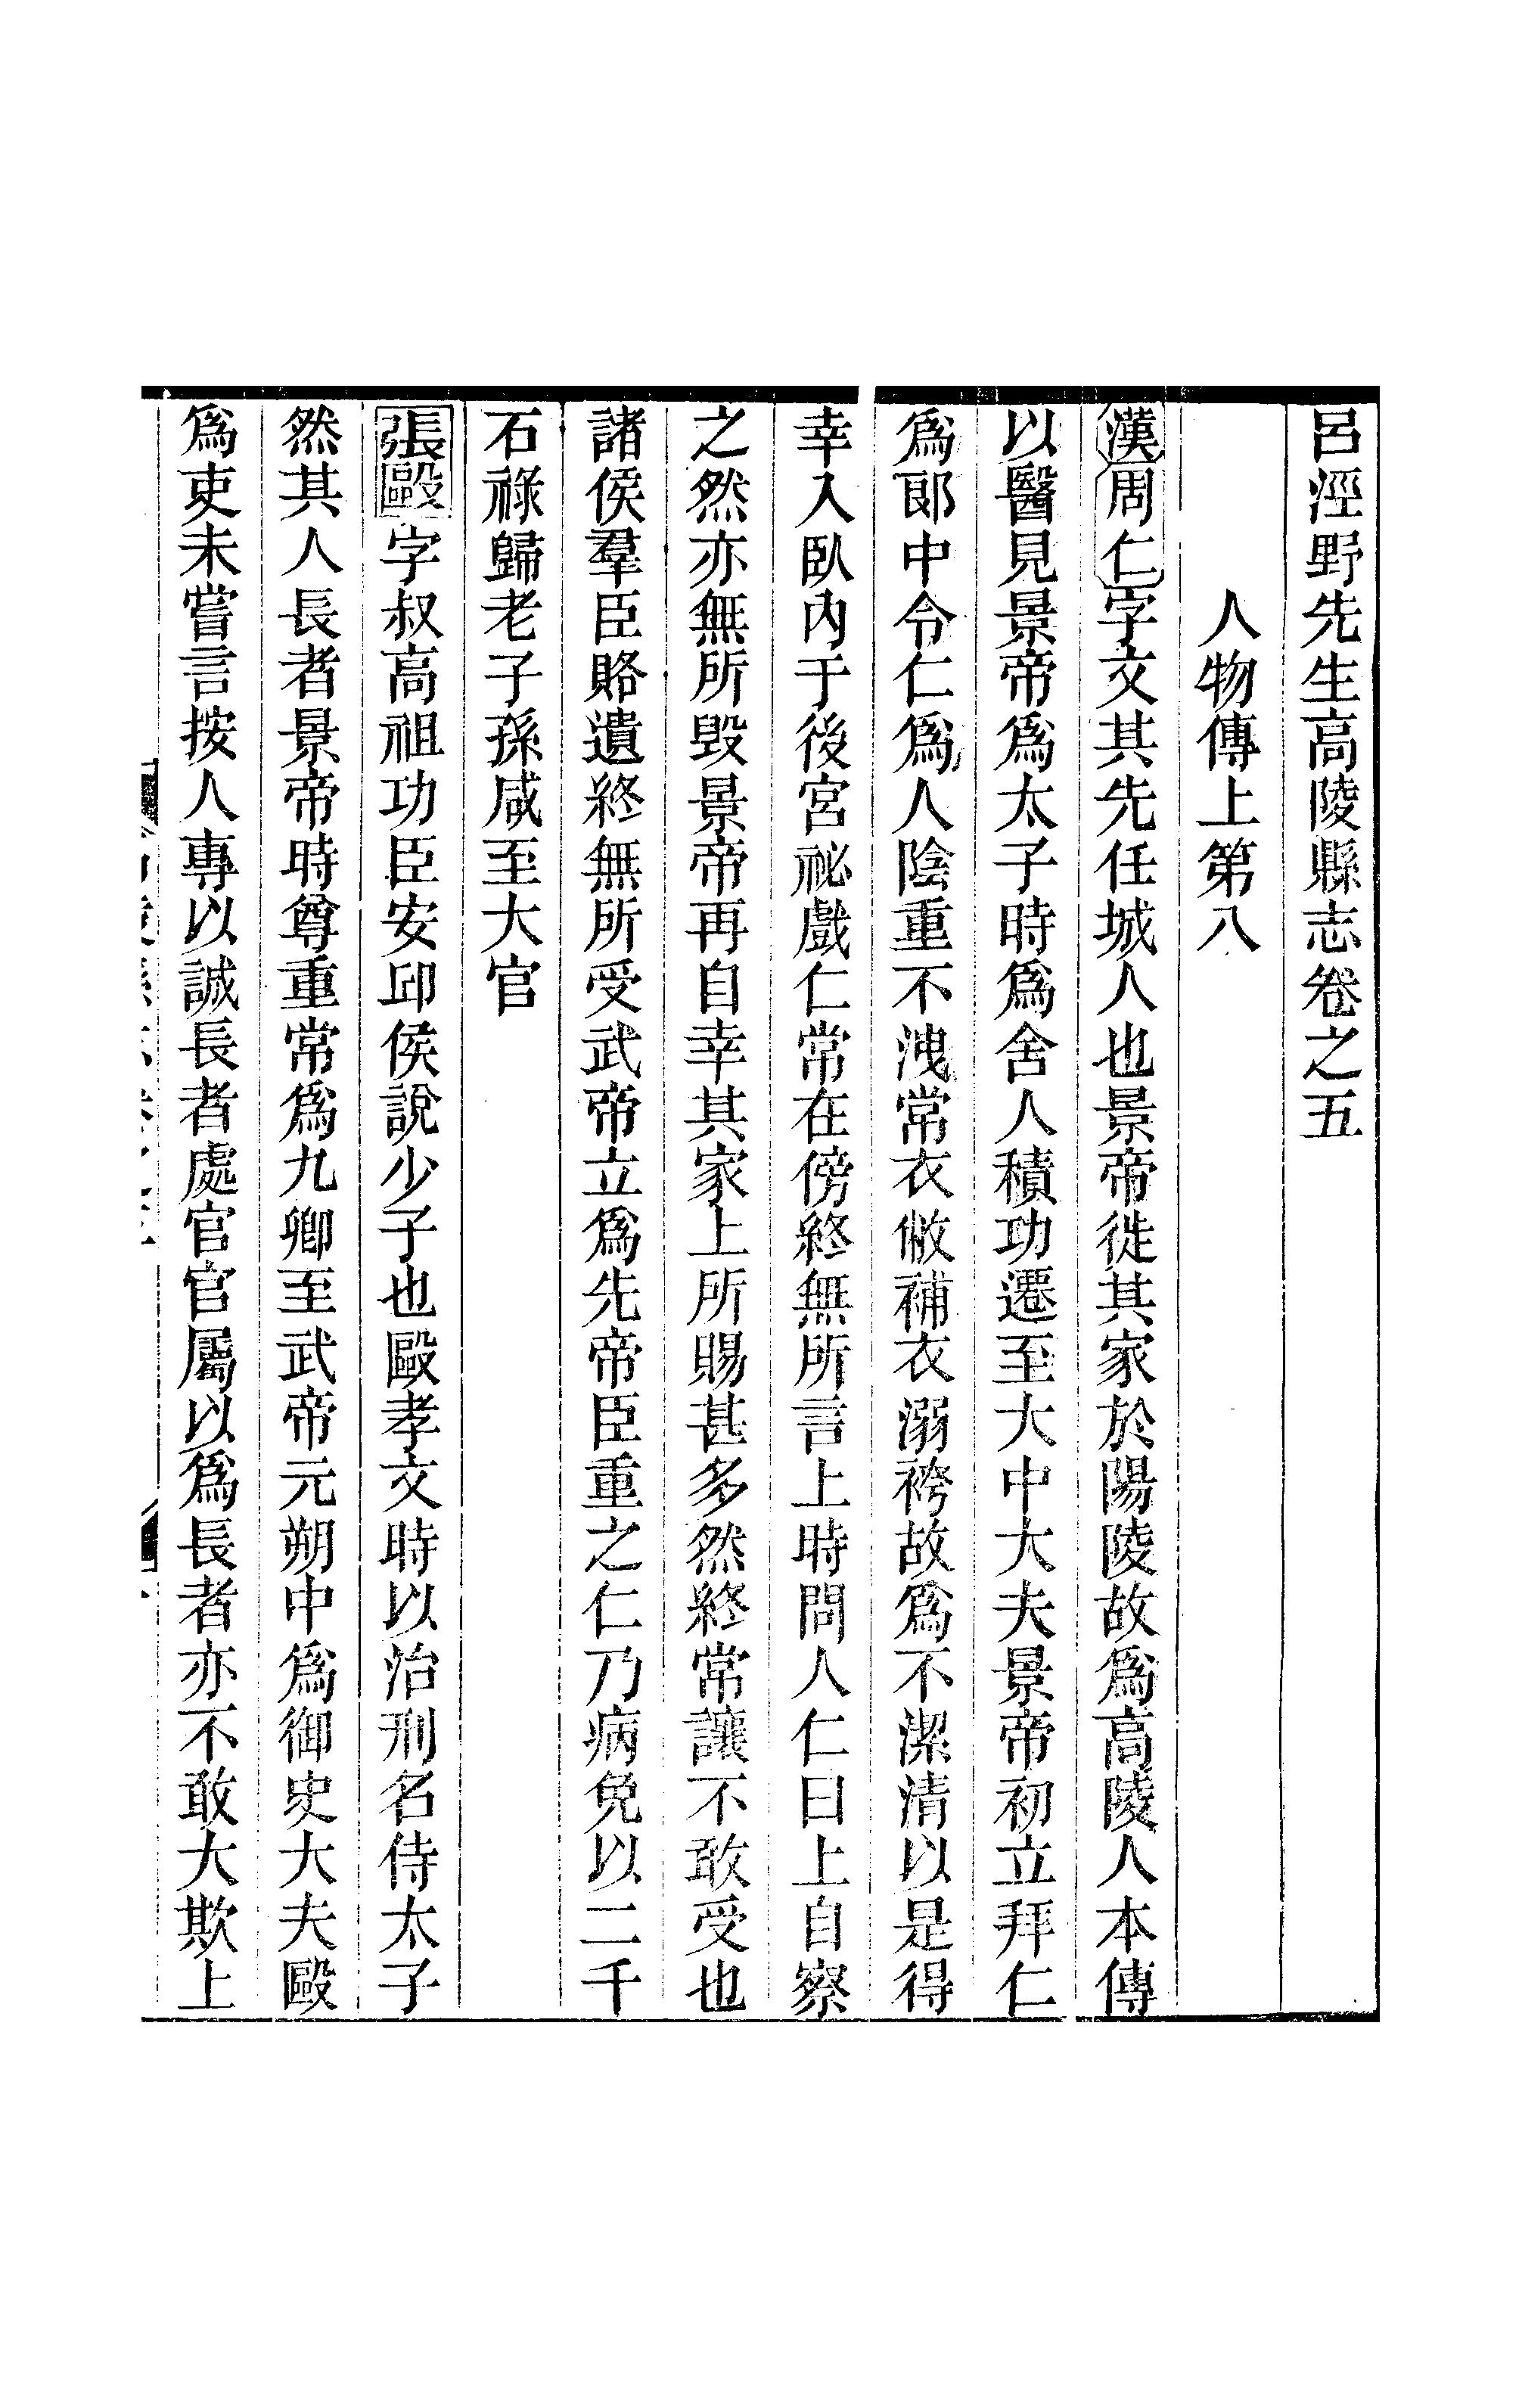 呂涇野先生高陵縣志卷之五
人物傳上第八
漢周仁字文其先任城人也景帝徙其家於陽陵故爲高陵人本傳
以醫見景帝爲太子時爲舍人積功遷至大中大夫景帝初立拜仁
爲郎中令仁爲人陰重不洩常衣敝補衣溺袴故爲不潔清以是得
幸入臥內于後宮祕戲仁常在傍終無所言上時問人仁曰上自察
之然亦無所毀景帝再自幸其家上所賜甚多然終常讓不敢受也
諸侯羣臣賂遺終無所受武帝立爲先帝臣重之仁乃病免以二千
石祿歸老子孫咸至大官
張歐字叔高祖功臣安邱侯說少子也歐孝文時以治刑名侍太子
然其人長者景帝時尊重常爲九卿至武帝元朔中爲御史大夫歐
爲吏未嘗言按人專以誠長者處官官屬以爲長者亦不敢大欺上